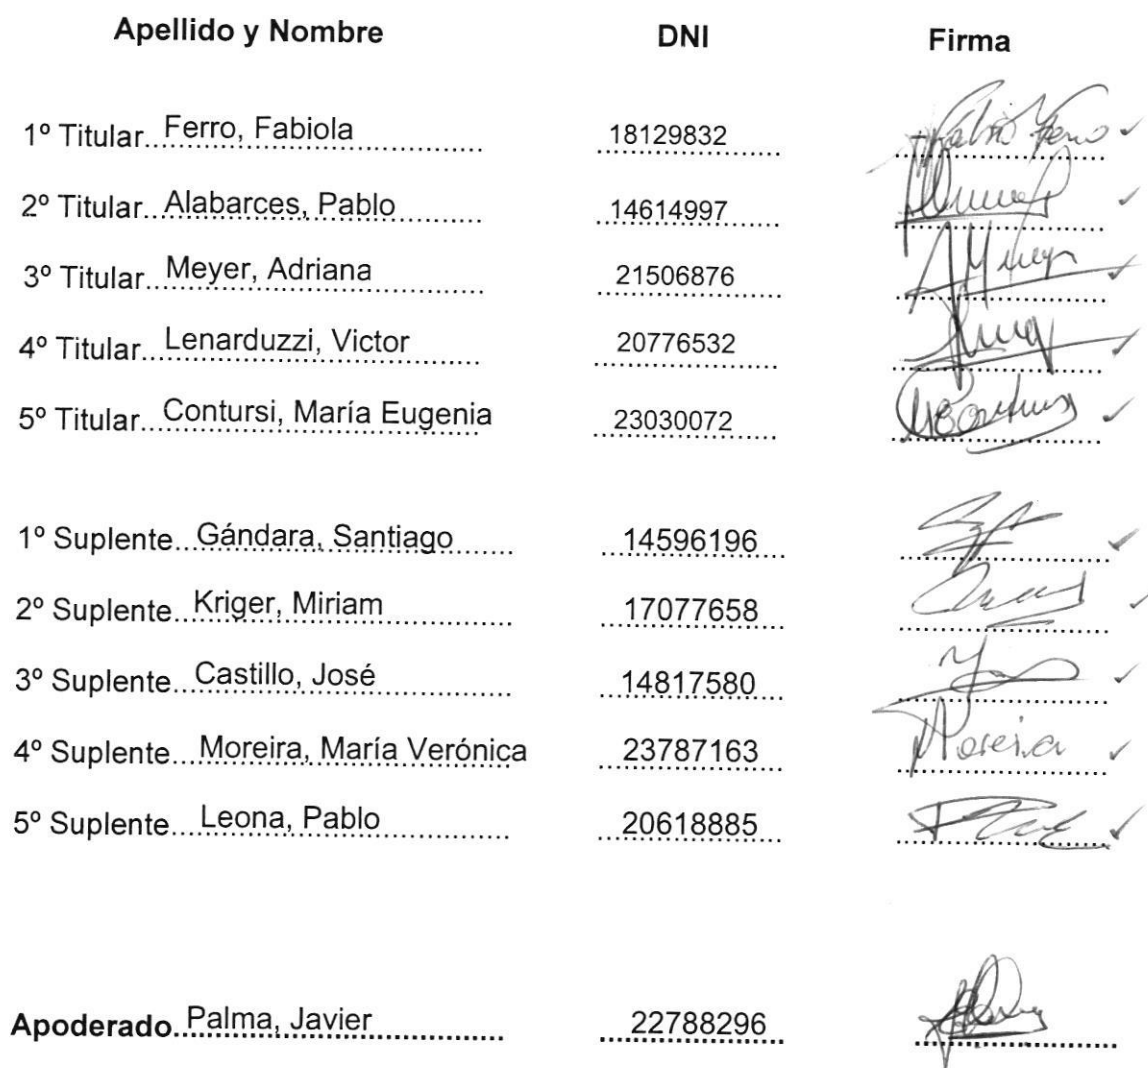 Apellido y Nombre DNI Firma
1º Titular...Ferro, Fabiola 18129832 Fabiola Ferro ✓
2º Titular...Alabarces, Pablo 14614997 ✓
3º Titular...Meyer, Adriana 21506876 ✓
4º Titular...Lenarduzzi, Victor 20776532 ✓
5º Titular...Contursi, María Eugenia 23030072 ✓
1º Suplente...Gándara, Santiago 14596196 ✓
2º Suplente...Kriger, Miriam 17077658 ✓
3º Suplente...Castillo, José 14817580 ✓
4º Suplente...Moreira, María Verónica 23787163 Moreira ✓
5º Suplente...Leona, Pablo 20618885 ✓
Apoderado...Palma, Javier 22788296